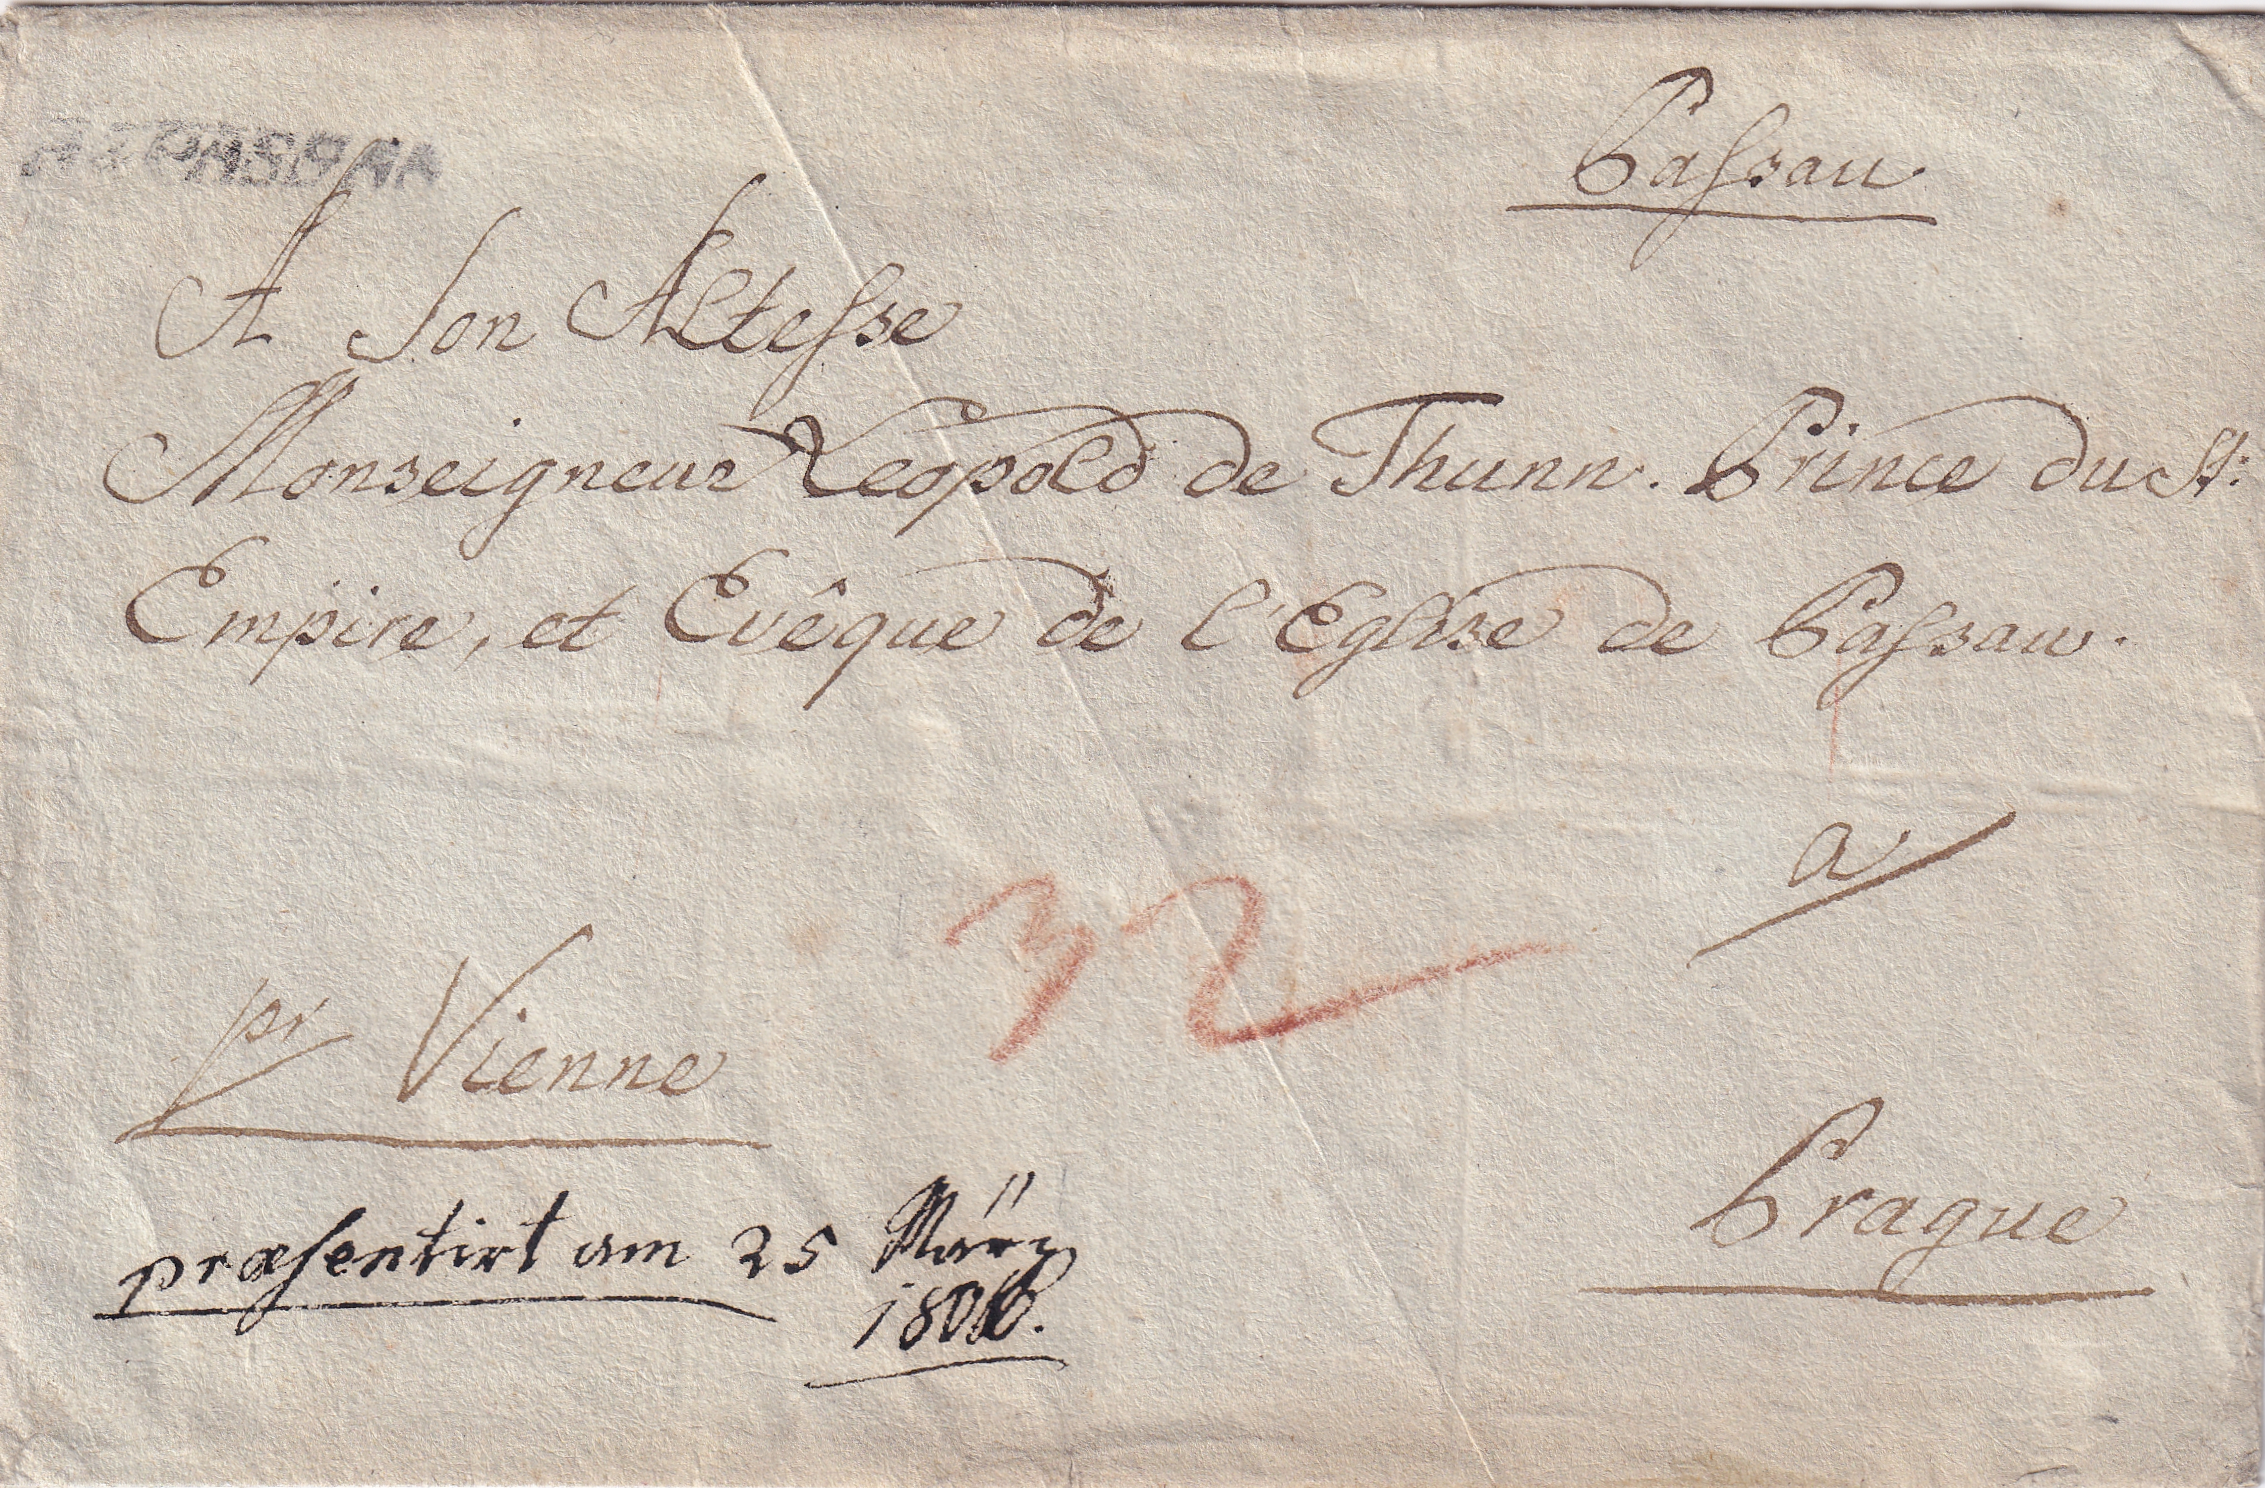 Passau.
A Son Altesse
Monseigneur Leopold de Thunn. Prince du St:
Empire, et Evêque de l'Eglise de Passau.
a
32
pr Vienne
Prague
præsentirt am 25 März